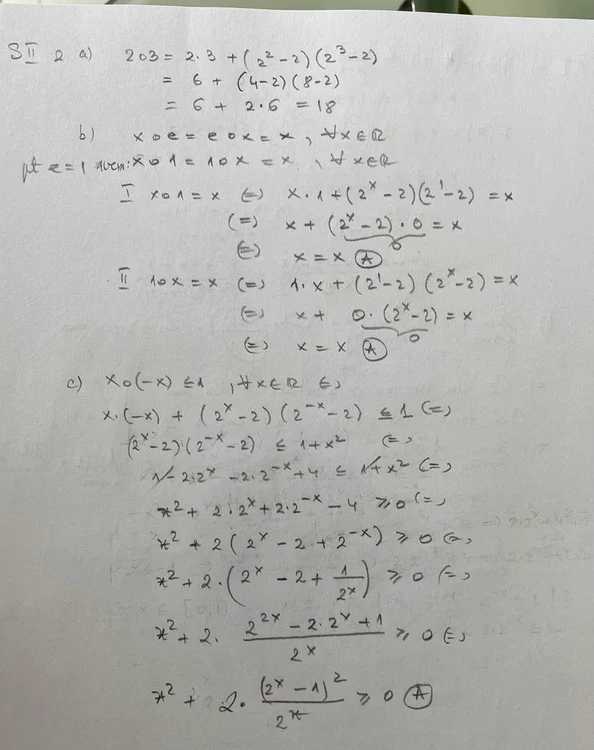 S II 2 a) 2 o 3 = 2 · 3 + (2² - 2)(2³ - 2)
= 6 + (4-2)(8-2)
= 6 + 2·6 = 18
b) x o e = e o x = x, ∀x∈ℝ
pt e=1 avem: x o 1 = 1 o x = x, ∀x∈ℝ
I x o 1 = x (=) x·1 + (2ˣ - 2)(2¹ - 2) = x
(=) x + (2ˣ - 2) · 0 = x
0
(=) x = x (A)
II 1 o x = x (=) 1·x + (2¹-2) (2ˣ-2) = x
(=) x + 0·(2ˣ-2) = x
0
(=) x = x (A)
c) x o (-x) ≤ 1, ∀x∈ℝ (=)
x·(-x) + (2ˣ - 2)(2⁻ˣ - 2) ≤ 1 (=)
(2ˣ-2)(2⁻ˣ-2) ≤ 1+x² (=)
1 - 2·2ˣ - 2·2⁻ˣ + 4 ≤ 1 + x² (=)
x² + 2·2ˣ + 2·2⁻ˣ - 4 ≥ 0 (=)
x² + 2(2ˣ - 2 + 2⁻ˣ) ≥ 0 (=)
x² + 2·(2ˣ - 2 + 1/2ˣ) ≥ 0 (=)
x² + 2· (2²ˣ - 2·2ˣ + 1)/2ˣ ≥ 0 (=)
x² + 2· (2ˣ - 1)²/2ˣ ≥ 0 (A)